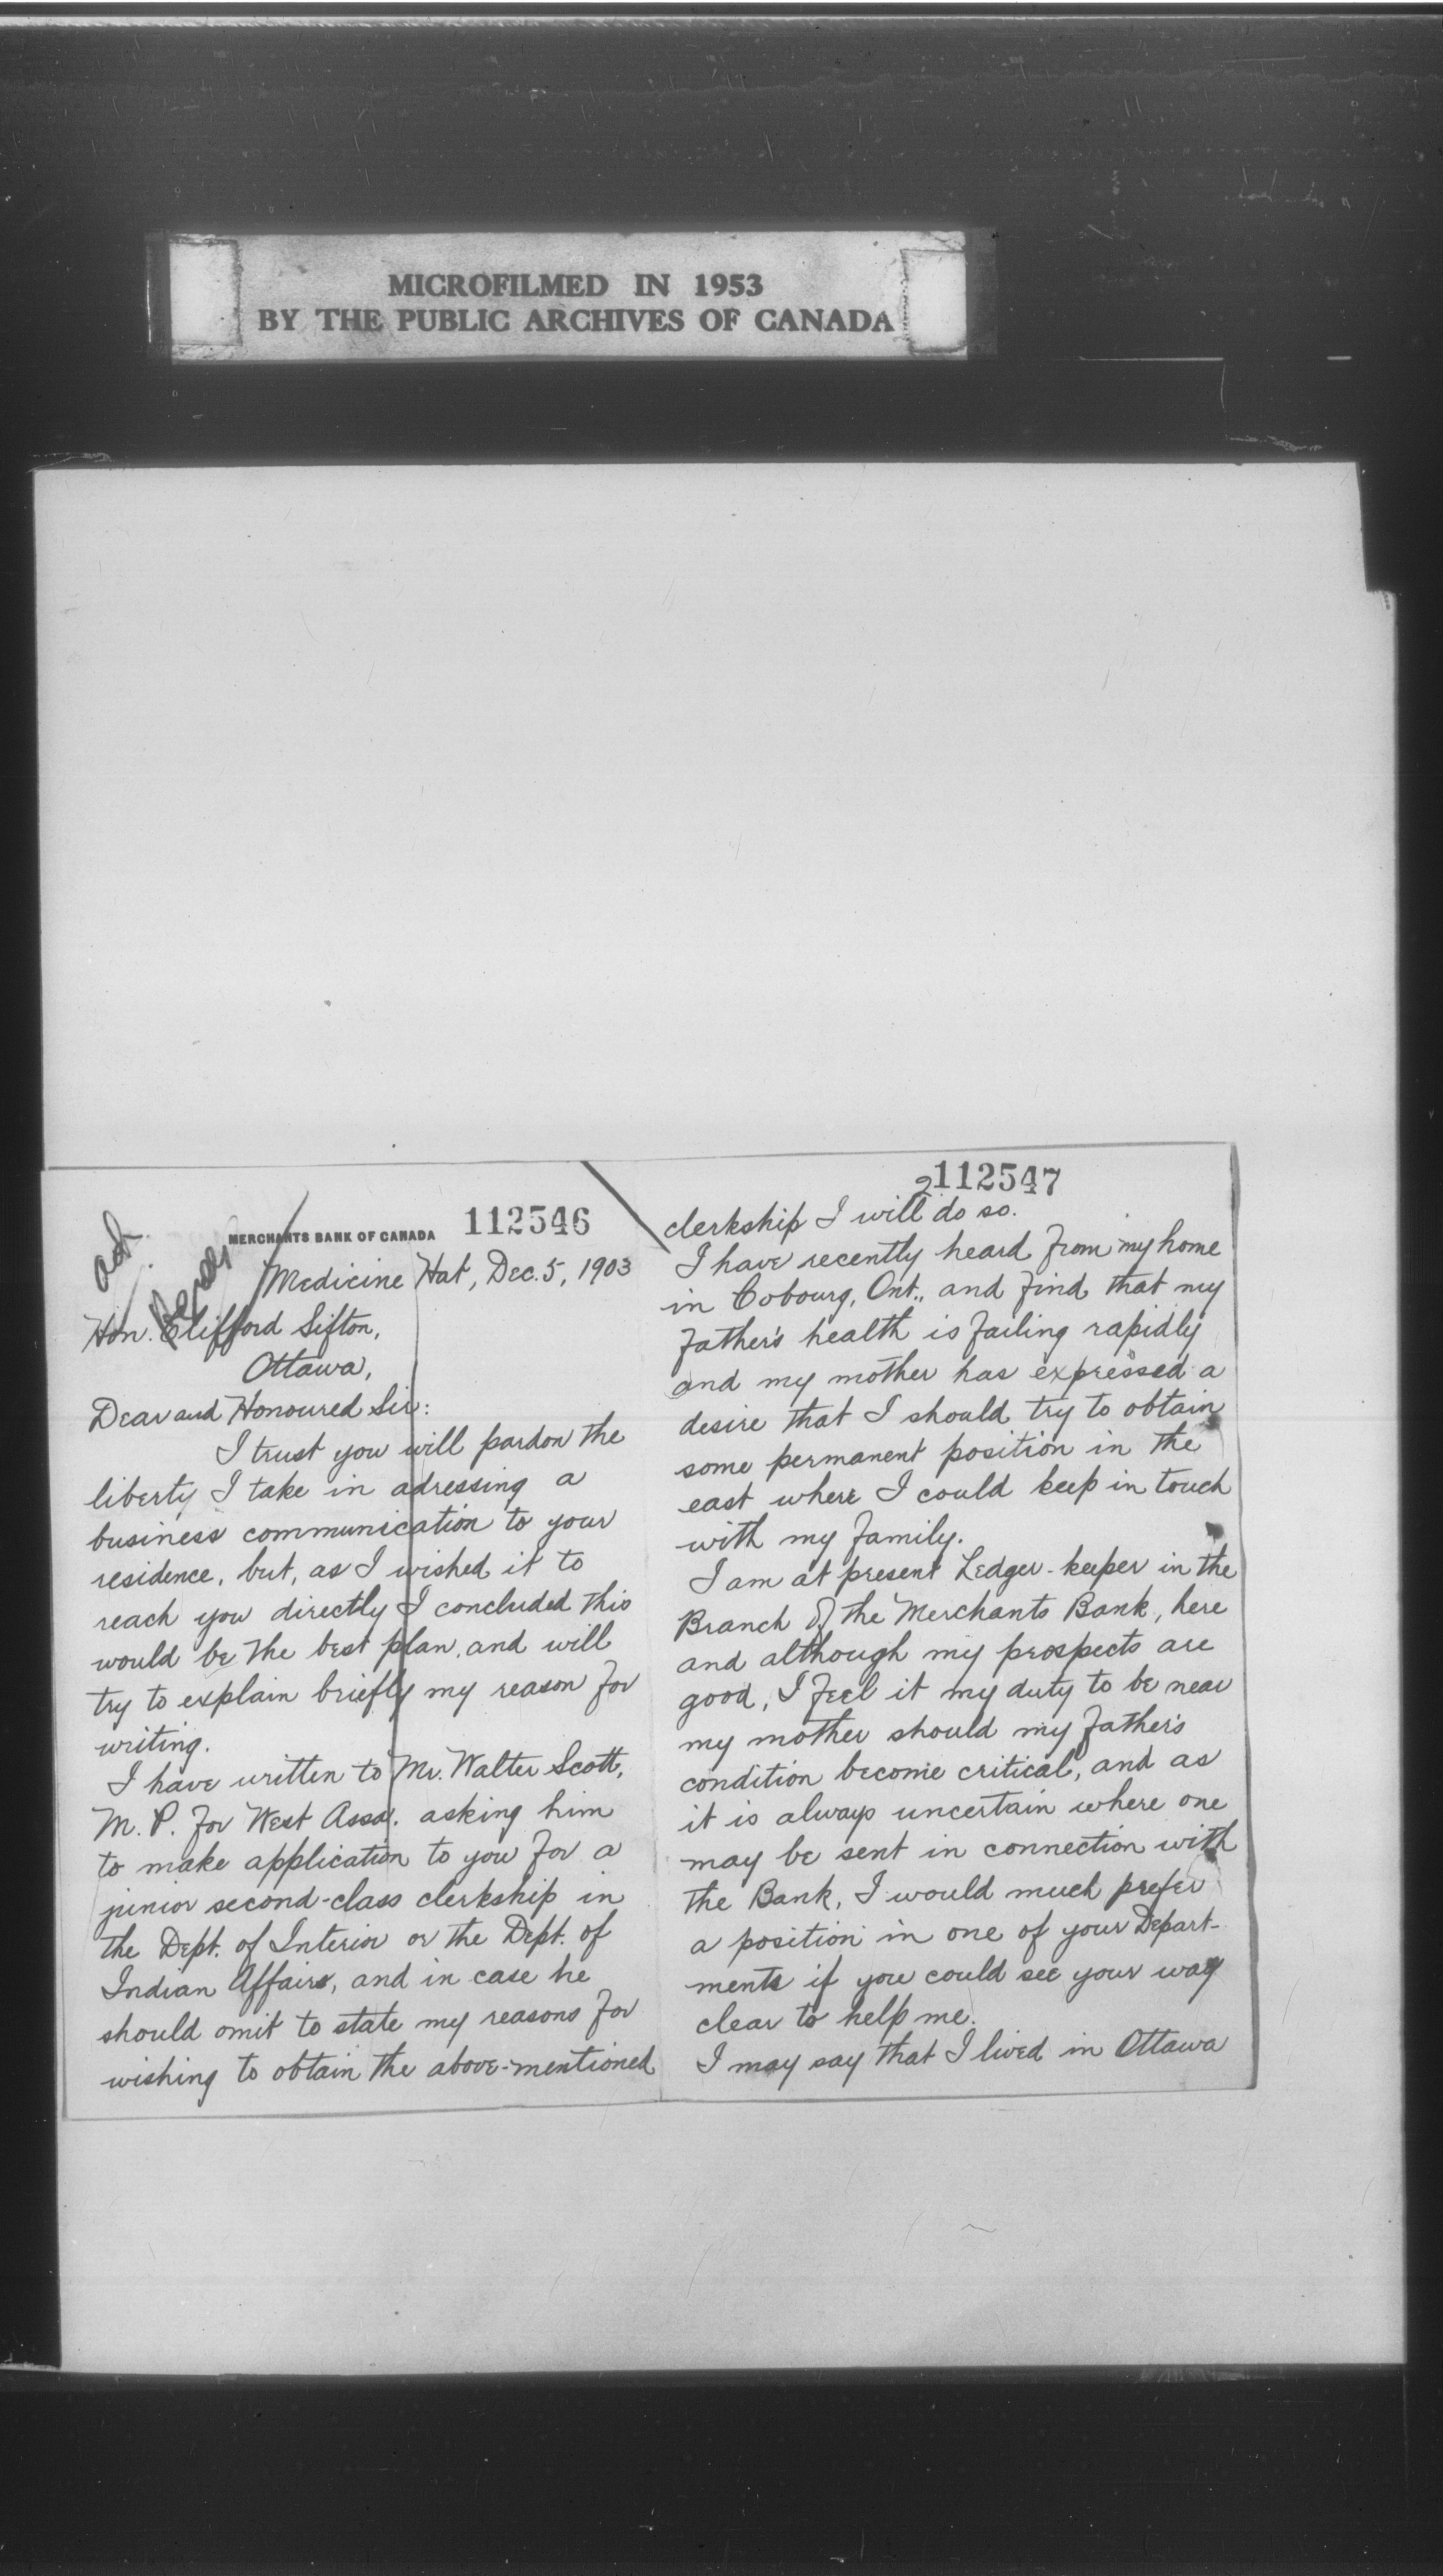 MICROFILMED IN 1953
BY THE PUBLIC ARCHIVES OF CANADA
112546
MERCHANTS BANK OF CANADA
ack.
Medicine Hat, Dec. 5, 1903
Hon. Clifford Sifton,
Ottawa,
Dear and Honoured Sir:
I trust you will pardon the
liberty I take in adressing a
business communication to your
residence, but, as I wished it to
reach you directly I concluded this
would be the best plan, and will
try to explain briefly my reason for
writing.
I have written to Mr. Walter Scott,
M. P. for West Assa. asking him
to make application to you for a
junior second-class clerkship in
the Dept. of Interior or the Dept. of
Indian Affairs, and in case he
should omit to state my reasons for
wishing to obtain the above-mentioned
112547
2
clerkship I will do so.
I have recently heard from my home
in Cobourg, Ont., and find that my
father's health is failing rapidly
and my mother has expressed a
desire that I should try to obtain
some permanent position in the
east where I could keep in touch
with my family.
I am at present Ledger-keeper in the
Branch of the Merchants Bank, here
and although my prospects are
good, I feel it my duty to be near
my mother should my father's
condition become critical, and as
it is always uncertain where one
may be sent in connection with
the Bank, I would much prefer
a position in one of your Depart-
ments if you could see your way
clear to help me.
I may say that I lived in Ottawa